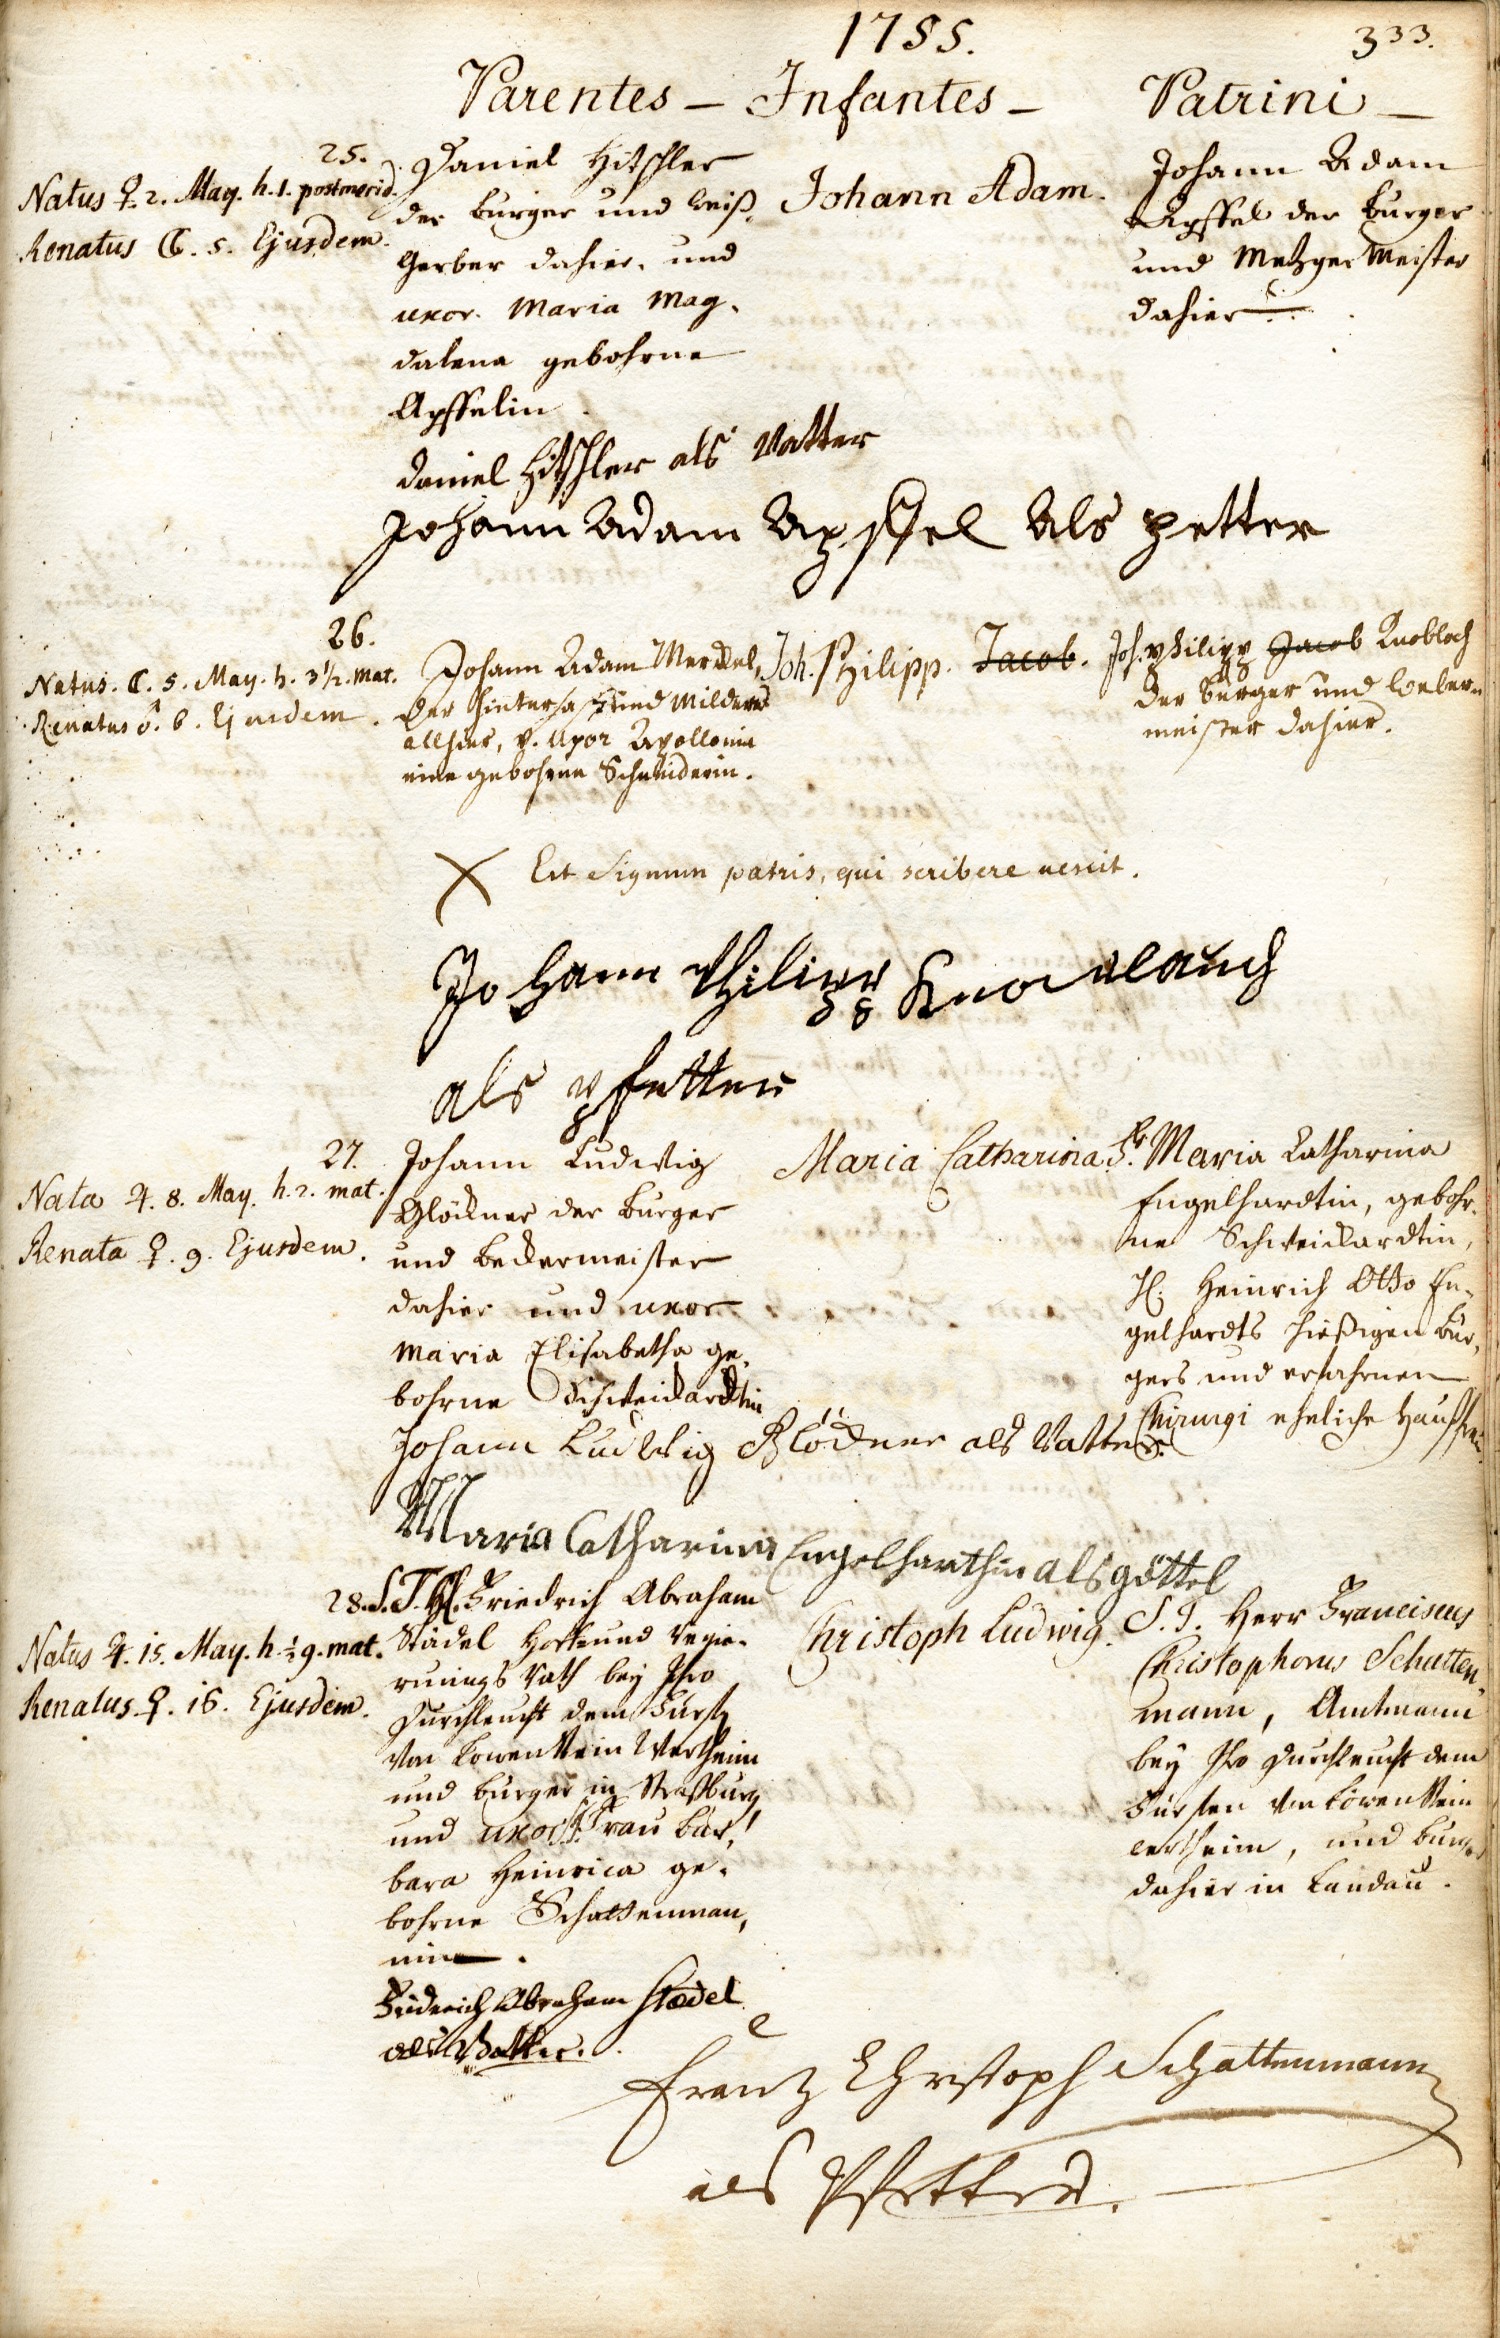 1755.
333.
Parentes — Infantes — Patrini —
25.
Natus ♀. 2. May. h. 1. postmerid.
Renatus ☾. 5. Ejusdem.
Daniel Hitschler
der burger und weiß
gerber dahier, und
uxor. Maria Mag-
dalena gebohrne
Apffelin
Johann Adam.
Johann Adam
Apffel der burger
und Metzger Meister
dahier.
Daniel Hitschler als Vatter
Johann Adam Apffel Als petter
26.
Natus. ☾. 5. May. h. 3 1/2. mat.
Renatus ♂. 6. Ejusdem.
Johann Adam Merckel,
der hintersaß und
allhier, v. Uxor Apollonia
eine gebohrne Schneiderin.
Joh. Philipp. Jacob.
Joh. Philipp Jacob Knobloch
der burger und weber-
meister dahier.
X Est Signum patris, qui scribere nescit.
Johann Philipp Knoblauch
als pfetter
27.
Nata ♃. 8. May. h. 2. mat.
Renata ♀. 9. Ejusdem.
Johann Ludwig
Glöckner der burger
und beckermeister
dahier und uxor
Maria Elisabetha ge-
bohrne Schweickardtin
Maria Catharina.
Fr. Maria Catharina
Engelhardtin, gebohr-
ne Schweickardtin,
H. Heinrich Otto En-
gelhardts hießigen bur-
gers und erfahrnen
Chirurgi eheliche haußfrau
Johann Ludwig Glöckner als Vatter
Maria Catharina Engelharthin als göttel
28.
Natus ♃. 15. May. h. 1/2 9. mat.
Renatus ♀. 16. Ejusdem.
S. T. H. Friedrich Abraham
Städel Hoff und regie-
rungs rath bey Ihro
Durchleucht dem Fürst
von Löwenstein Wertheim
und burger in Straßburg
und uxor Frau bar-
bara Heinrica ge-
bohrne Schattenman-
nin.
Christoph Ludwig.
S. T. Herr Franciscus
Christophorus Schatten-
mann, Amtmann
bey Ihro Durchleucht dem
Fürsten von Löwenstein
wertheim, und burger
dahier in Landau.
Friderich Abraham Stædel
als Vatter.
Frantz Christoph Schattenmann
als Pfetter.